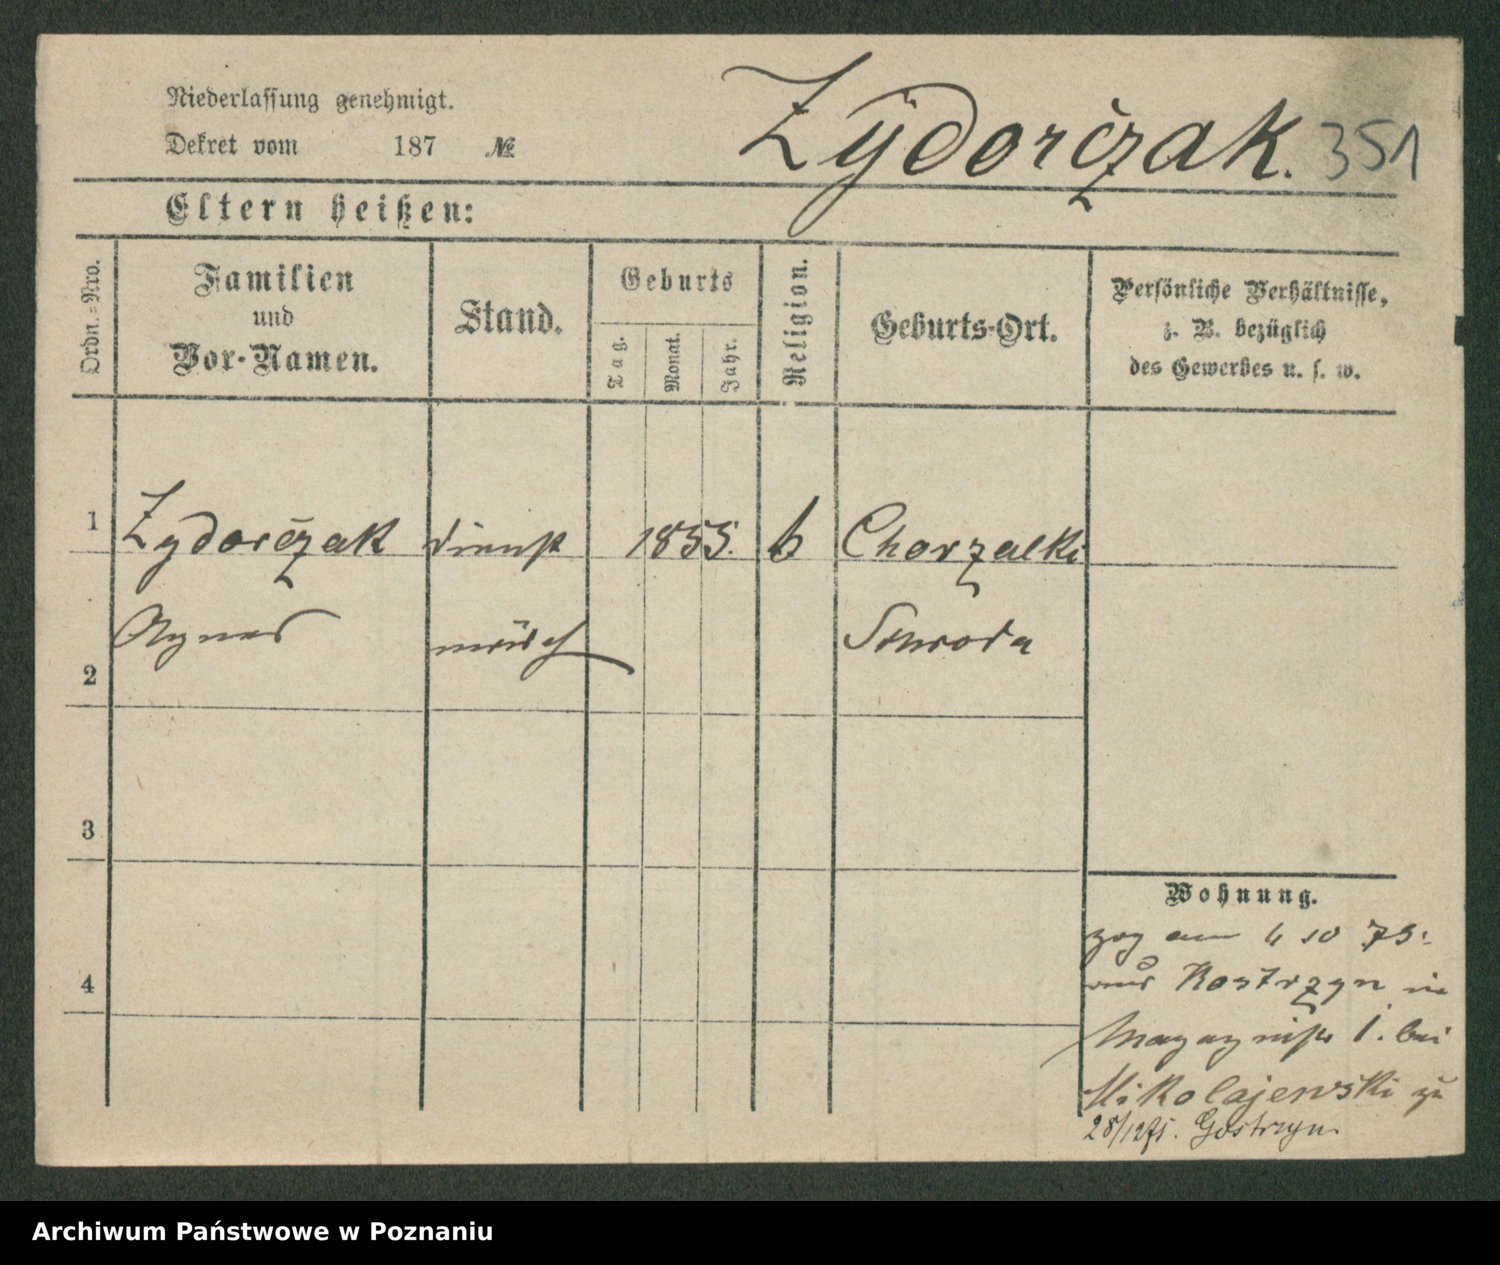 Niederlassung genehmigt.
Dekret vom 187 №
Zÿdorczak. 351
Eltern heißen:
Ordn.-Nro.
Familien und Vor-Namen.
Stand.
Geburts
Tag.
Monat.
Jahr.
Religion.
Geburts-Ort.
Persönliche Verhältnisse,
z. B. bezüglich
des Gewerbes u. s. w.
1 Zydorczak dienst 1855. k Chorzalki
Agnes mädch Schroda
2
3
4
Wohnung.
zog am 4 10 75.
aus Kostrzyn in
1. bei
Mikolajewski zu
28/12 75. Gostrzyn.
Archiwum Państwowe w Poznaniu